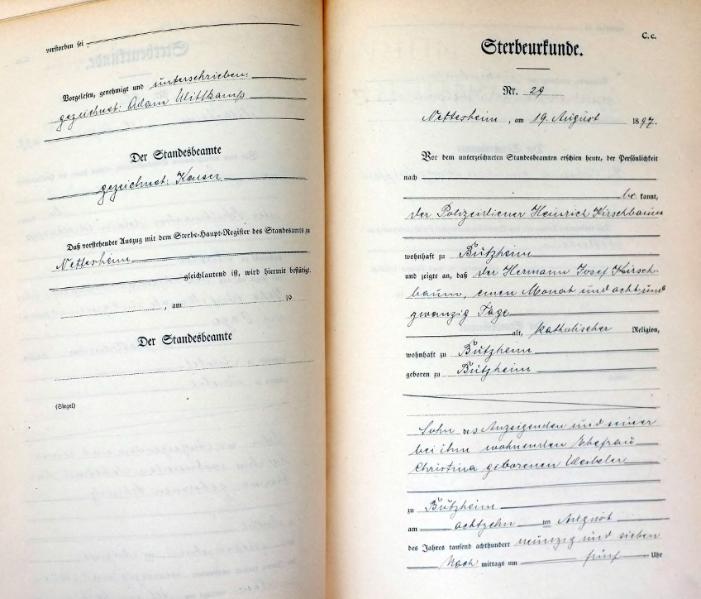 verstorben sei
Vorgelesen, genehmigt und unterschrieben
gezeichnet: Adam Wittkamp
Der Standesbeamte
gezeichnet: Kauser
Daß vorstehender Auszug mit dem Sterbe-Haupt-Register des Standesamts zu
Nettersheim
gleichlautend ist, wird hiermit bestätigt.
, am 19
Der Standesbeamte
(Siegel)
C. c.
Sterbeurkunde.
Nr. 29
Nettersheim, am 19. August 1897.
Vor dem unterzeichneten Standesbeamten erschien heute, der Persönlichkeit
nach
be kannt,
der Polizeidiener Heinrich Kirschbaum
wohnhaft zu Bützheim
und zeigte an, daß der Hermann Josef Kirsch-
baum, einen Monat und acht und
zwanzig Tage
alt, katholischer Religion,
wohnhaft zu Bützheim
geboren zu Bützheim
Sohn es Anzeigenden und seiner
bei ihm wohnenden Ehefrau
Christina geborenen
zu Bützheim
am achtzehn ten August
des Jahres tausend achthundert neunzig und sieben
Nach mittags um fünf Uhr